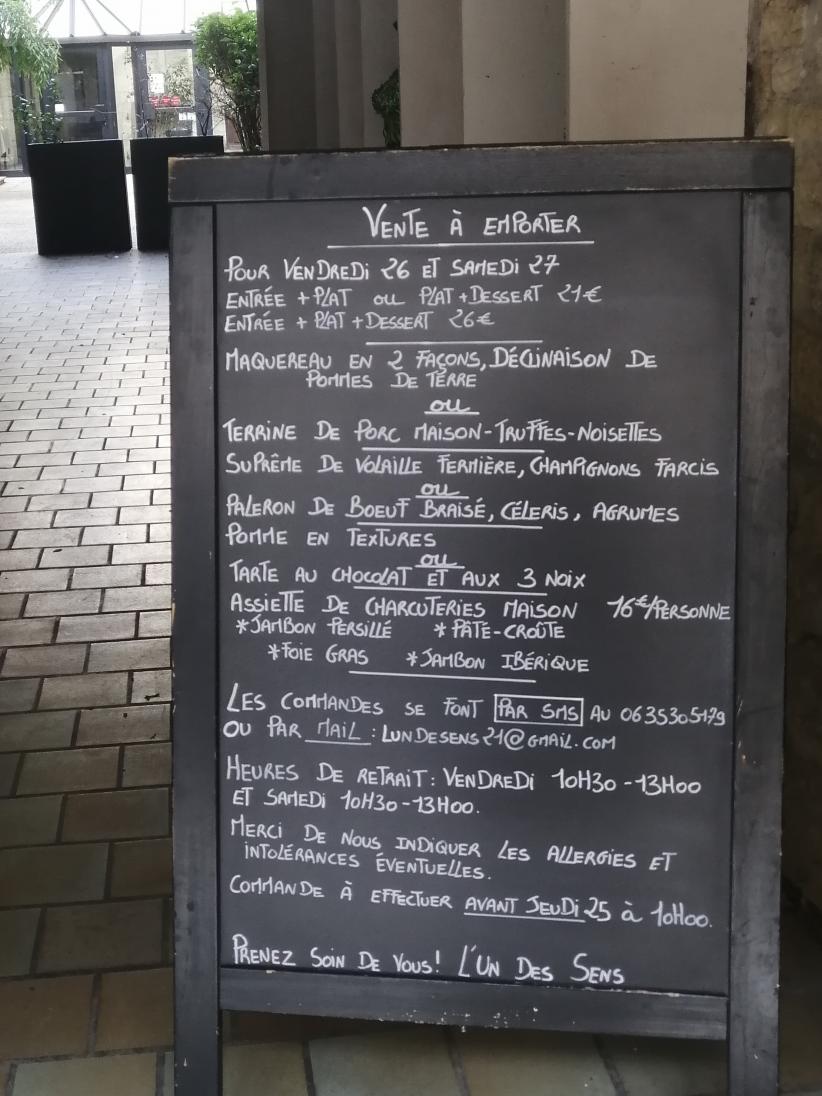 VENTE À EMPORTER
POUR VENDREDI 26 ET SAMEDI 27
ENTRÉE + PLAT OU PLAT + DESSERT 21€
ENTRÉE + PLAT + DESSERT 26€
MAQUEREAU EN 2 FAÇONS, DÉCLINAISON DE
POMMES DE TERRE
OU
TERRINE DE PORC MAISON - TRUFFES - NOISETTES
SUPRÊME DE VOLAILLE FERMIÈRE, CHAMPIGNONS FARCIS
OU
PALERON DE BOEUF BRAISÉ, CÉLERIS, AGRUMES
POMME EN TEXTURES
OU
TARTE AU CHOCOLAT ET AUX 3 NOIX
ASSIETTE DE CHARCUTERIES MAISON 16€/PERSONNE
*JAMBON PERSILLÉ *PÂTE-CROÛTE
*FOIE GRAS *JAMBON IBÉRIQUE
LES COMMANDES SE FONT PAR SMS AU 0635305179
OU PAR MAIL : LUNDESENS21@GMAIL.COM
HEURES DE RETRAIT : VENDREDI 10H30 - 13H00
ET SAMEDI 10H30 - 13H00.
MERCI DE NOUS INDIQUER LES ALLERGIES ET
INTOLÉRANCES ÉVENTUELLES.
COMMANDE À EFFECTUER AVANT JEUDI 25 à 10H00.
PRENEZ SOIN DE VOUS! L'UN DES SENS